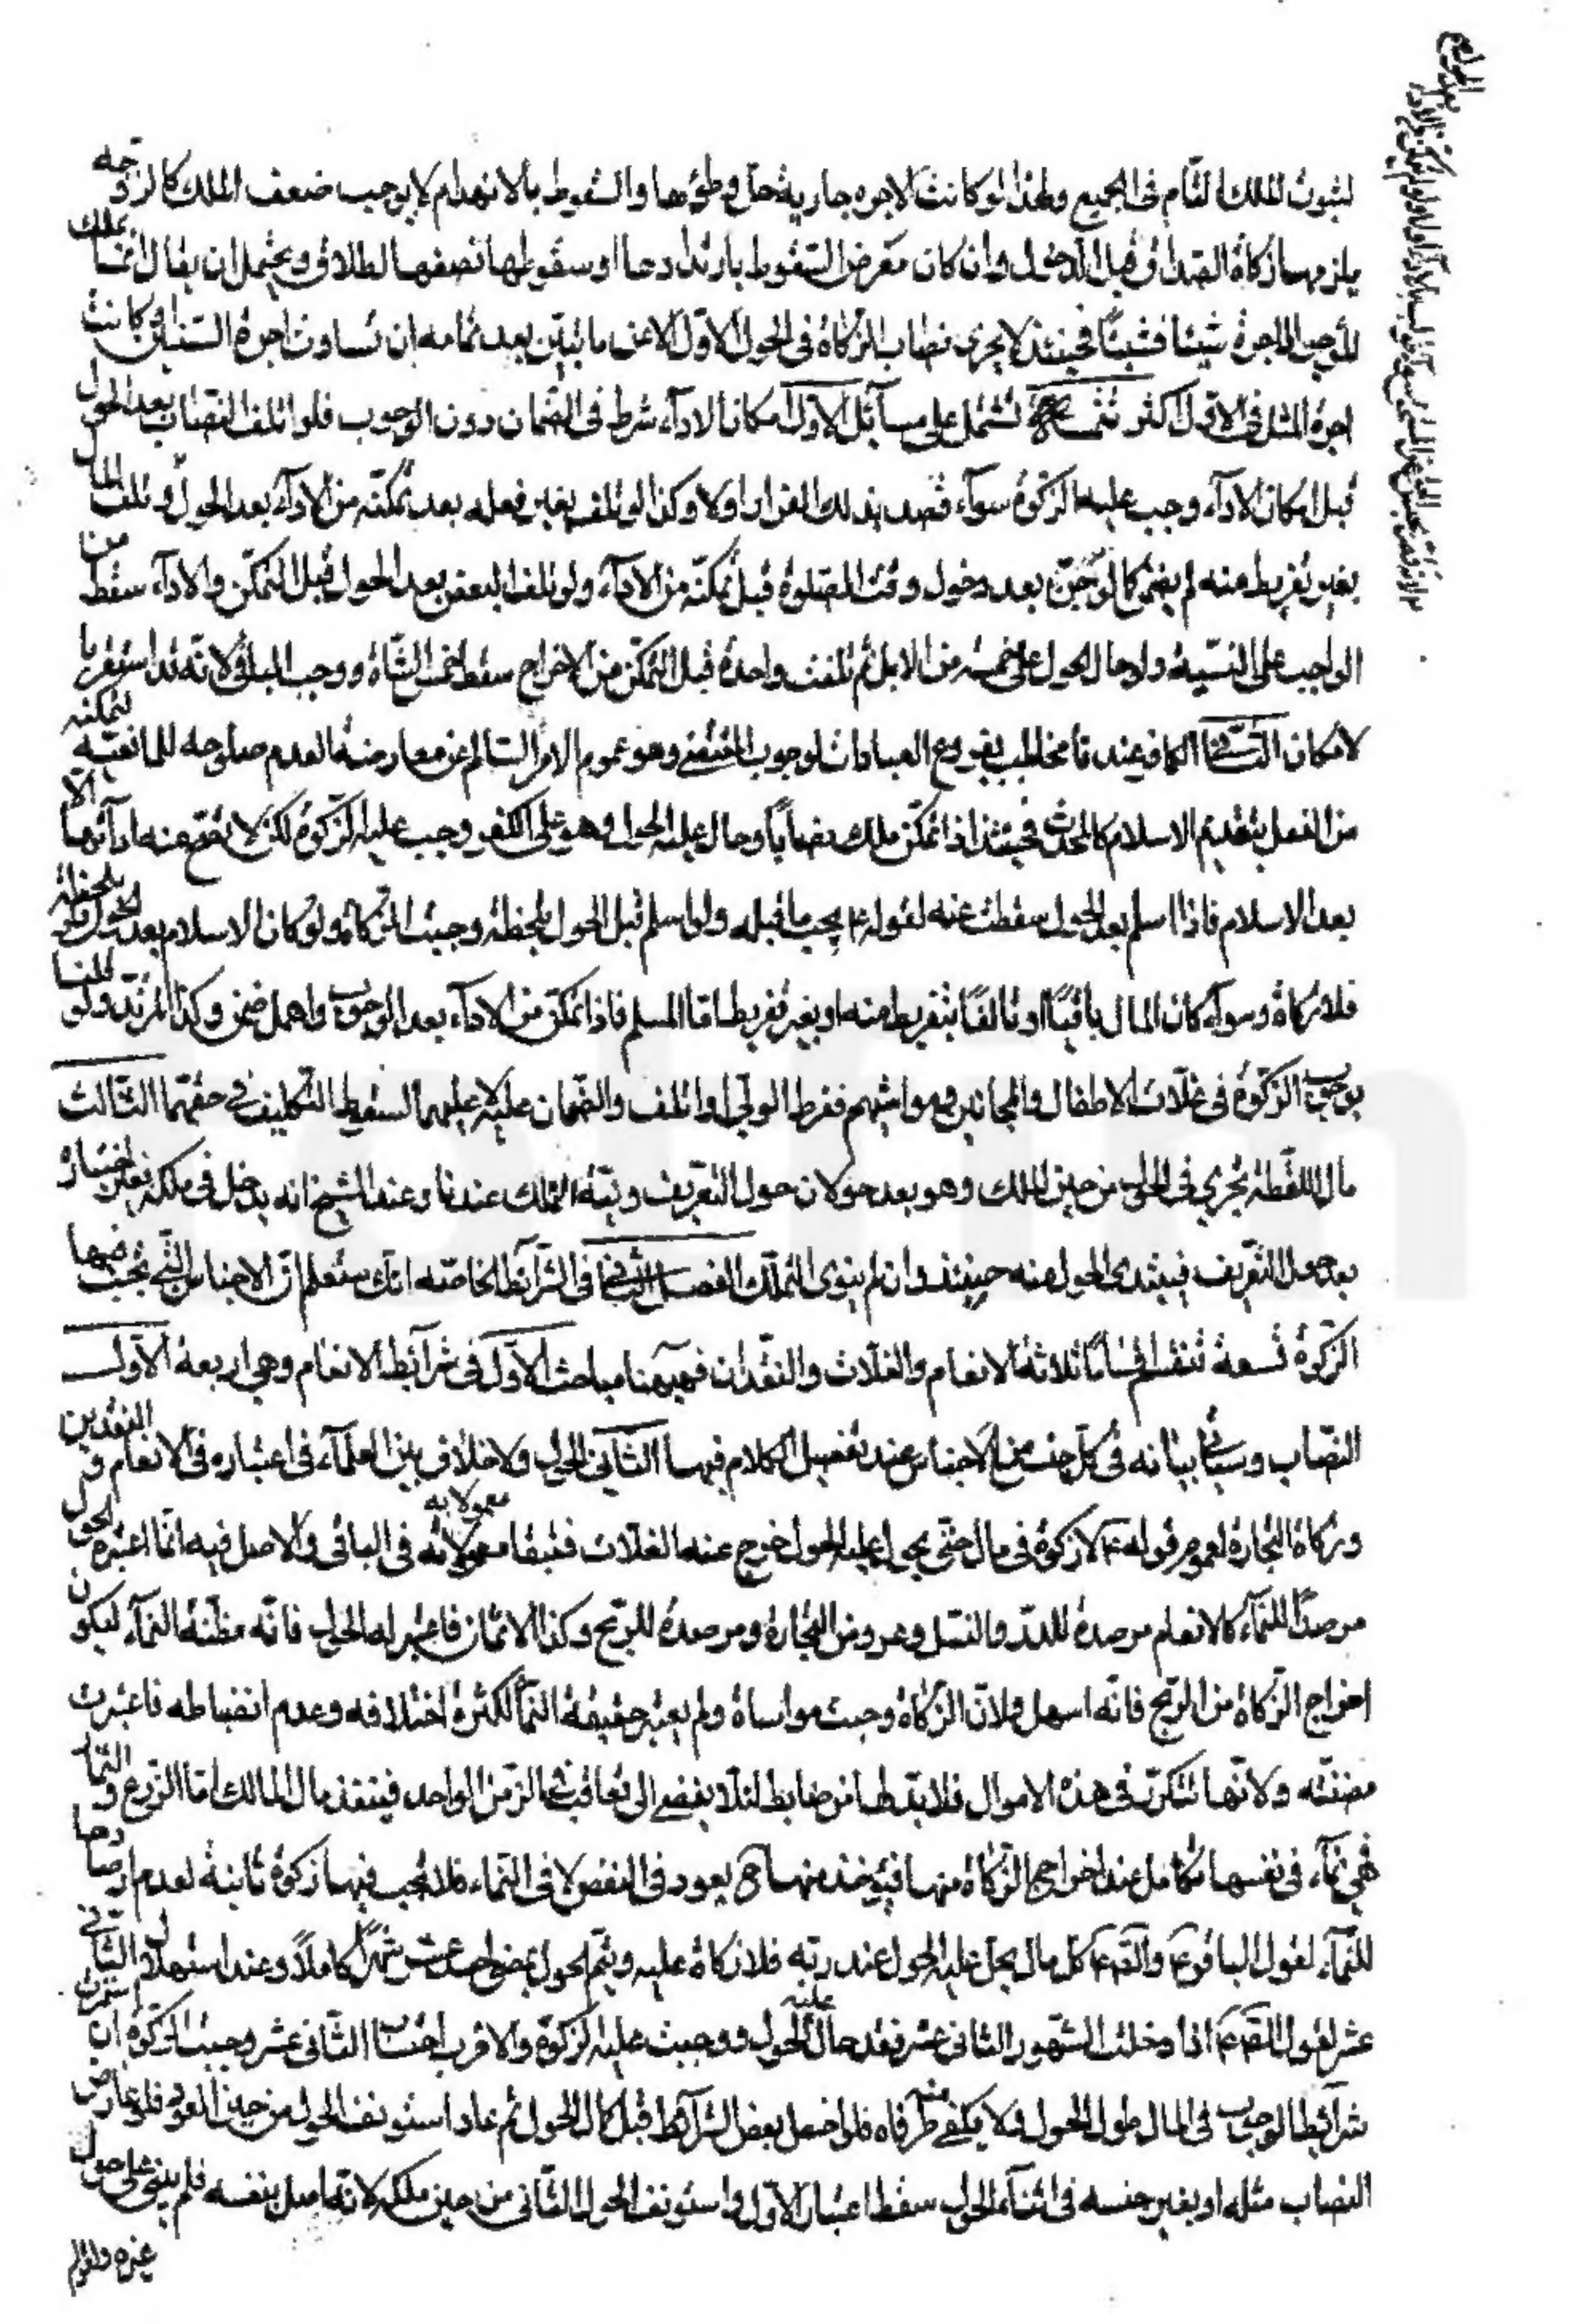 لثبوت الملك التام فى الجميع ولهذا لو كانت الاجره جارية حل وطؤها والسقوط بالانهدام لا يوجب ضعف الملك كالزوجه
يلزمها زكاة الصداق قبل الدخول وان كان معرض السقوط بارتدادها او سقوط لها نصفها لطلاق ويحتمل ان يقال انما يملك
المؤجر الاجرة شيئا فشيئا فحينئذ لا يجرى نصاب الزكاة فى الحول الاول الا عن ما تبين بعد تمامه ان تساوت اجرة السنتين او كانت
اجرة المثل فى الاول اكثر تتمة تشتمل على مسائل الاول امكان الاداء شرط فى الضمان دون الوجوب فلو اتلف النصاب بعد الحول
قبل امكان الاداء وجب عليه الزكوة سواء قصد بذلك الفرار اولا وكذا لو تلف بغير فعله بعد تمكنه من الاداء بعد الحول ولو تلف المال
بغير تفريط منه لم يضمن كما لو جن بعد دخول وقت الصلوة قبل تمكنه من الاداء ولو تلف البعض بعد الحول قبل التمكن والاداء سقط من
الواجب على النسبة ولو حال الحول على خمسة من الابل ثم تلفت واحدة قبل التمكن من الاخراج سقط خمس الشاة ووجب الباقى لانه قد استقر بها
لامكان الثانى الكافر عندنا مخاطب بفروع العبادات لوجوب المقتضى وهو عموم الامر السالم عن معارضة العدم صلوحه للمانعية لتمكنه
من الفعل بتقديم الاسلام كالمحدث فحينئذ اذا تمكن ملك نصابا وحال عليه الحول وهو على الكفر وجب عليه الزكوة لكن لا يصح عنه اداؤها الا
بعد الاسلام فاذا اسلم بعد الحول سقطت عنه لقوله ع يجب ما قبله ولو اسلم قبل الحول بلحظة وجبت الزكاة ولو كان الاسلام بعد الحول ولو بلحظة
فلا زكاة وسواء كان المال باقيا او تالفا بتفريط منه او بغير تفريط اما المسلم فاذا تمكن من الاداء بعد الوجوب واهمل ضمن وكذا المرتد ولو قلنا
بوجوب الزكوة فى غلات الاطفال والمجانين ومواشيهم ففرط الولى او اتلف والضمان عليه لا عليهما لسقوط التكليف فى حقهما الثالث
مال اللقطة يجرى فى الحول من حين الملك وهو بعد حولان حول التعريف ونية التملك عندنا وعند الشيخ انه يدخل فى ملكه بغير اختياره
بعد حول التعريف فيبتدى الحول منه حينئذ وان لم ينوى التملك الفصل الثانى فى الشرائط الخاصة انك ستعلم ان الاجناس التى تجب فيها
الزكوة تسعة تنقسم اقساما ثلاثة الانعام والغلات والنقدان فهيهنا مباحث الاول فى شرائط الانعام وهى اربعة الاول
النصاب وسيأتى بيانه فى كل جنس من الاجناس عند تفصيل الكلام فيها الثانى الحول ولا خلاف بين العلماء فى اعتباره فى الانعام والنقدين
وزكاة التجارة لعموم قوله ع لا زكوة فى مال حتى يحول عليه الحول خرج عنه الغلات فتبقا معمولا به فى الباقى والاصل فيه انما اعتبر الحول
مرصدا للنماء كالانعام مرصدة للدر والنسل وعروض التجارة ومرصدة للربح وكذا الاثمان فاعتبر له الحول فانه مظنة النماء ليكون
اخراج الزكاة من الربح فانه اسهل ولان الزكاة وجبت مواساة ولم يعتبر حقيقة النماء لكثرة اختلافه وعدم انضباطه فاعتبرت
مضنته ولانها تتكرر فى هذه الاموال فلا بد لها من ضابط لئلا يفضى الى تعاقبها فى الزمن الواحد فينفذ مال المالك اما الزرع والثمار
فهى نماء فى نفسها تتكامل عند اخراج الزكاة منها فيؤخذ منها ح يعود فى النقص لا فى النماء فلا تجب فيها زكوة ثانية لعدم ارصادها
للنماء لقول الباقر ع والصادق ع كل مال لم يحل عليه الحول عند ربه فلا زكاة عليه ويتم الحول بمضى احد عشر شهرا كاملا وعند استهلال الثانى
عشر لقول الصادق ع اذا دخلت الشهور الثانى عشر فقد حال عليه الحول ووجبت عليه الزكوة والاقرب احتساب الثانى عشر وجبت الزكوة ان استمرت
شرائط الوجوب فى المال طول الحول ولا يكفى طرفاه فلو اختل بعض الشرائط قبل كمال الحول ثم عاد استونف الحول من حين العود فلو عاوض
النصاب مثله او بغير جنسه فى اثناء الحول سقط اعتبار الاول واستونف الحول الثانى من حين ملكه لانه اصل بنفسه فلم يبنى على حول
غيره